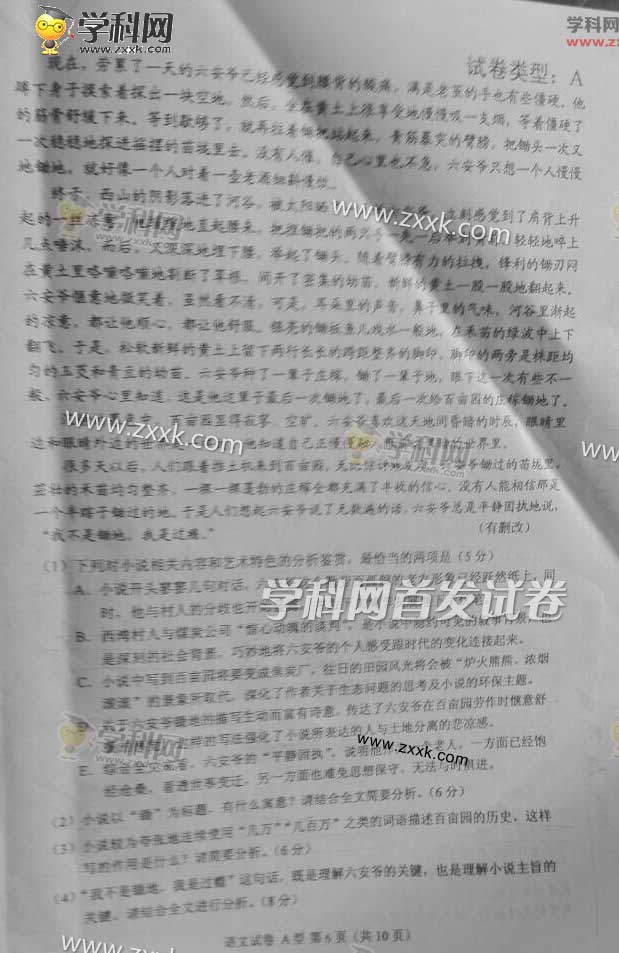 学科网
www.zxxk.com
学科网
www.zx
试卷类型：A
现在，劳累了一天的六安爷已经感觉到腰背的酸痛，满是老茧的手也有些僵硬。他
蹲下身子摸索着探出一块空地，然后，坐在黄土上很享受地慢慢吸一支烟，等着僵硬了
的筋骨舒缓下来。等到歇够了，就再拉着锄把站起来，青筋暴突的臂膀，把锄头一次又
一次稳稳地探进摇摆的苗垅里去。没有人催，自己心里也不急，六安爷只想一个人慢慢
地锄地，就好像一个人对着一壶老酒细斟慢饮。
终于，西山的阴影落进了河谷，被太阳晒 立刻感觉到了肩背上升
起的一丝凉意 地直起腰来，把捏锄把的两只手 先一后举到 轻轻地啐上
几点唾沫，而后，又深深地埋下腰，举起了锄头。随着臂膀有力的拉拽，锋利的锄刃闷
在黄土里咯嘣咯嘣地割断了草根，间开了密集的幼苗，新鲜的黄土一股一股地翻起来。
六安爷惬意地微笑着，虽然看不清，可是，耳朵里的声音，鼻子里的气味，河谷里渐起
的凉意，都让他顺心，都让他舒服。银亮的锄板鱼儿戏水一般地，在禾苗的绿波中上下
翻飞。于是，松软新鲜的黄土上留下两行长长的跨距整齐的脚印，脚印的两旁是株距均
匀的玉茭和青豆的幼苗。六安爷种了一辈子庄稼，锄了一辈子地，眼下这一次有些不一
般，六安爷心里知道，这是他这辈子最后一次锄地了，最后一次给百亩园的庄稼锄地了。
百亩园显得寂寥、空旷。六安爷喜欢这天地间昏暗的时辰，眼睛里
边和眼睛外边的世界是 他知道自己正慢慢融 的世界里。
很多天以后，人们跟着推土机来到百亩园，无比惊讶地发现 爷锄过的苗垅里，
茁壮的禾苗均匀整齐，一棵一棵蓬勃的庄稼全都充满了丰收的信心。没有人能相信那是
一个半瞎子锄过的地。于是人们想起六安爷说了无数遍的话，六安爷总是平静固执地说，
“我不是锄地，我是过瘾。”
（有删改）
（1）下列对小说相关内容和艺术特色的分析鉴赏，最恰当的两项是（5 分）
A．小说开头寥寥几句对话，六 形象已经跃然纸上，同
时，他与村人的分歧也开
B．西湾村人与煤炭公司“惊心动魄的谈判”，是小说中隐约可见的叙事背景，也
是深刻的社会背景，巧妙地将六安爷的个人感受跟时代的变化连接起来。
C．小说中写到百亩园将要变成焦炭厂，往日的田园风光将会被“炉火熊熊，浓烟
滚滚”的景象所取代，深化了作者关于生态问题的思考及小说的环保主题。
D．关于六安爷锄地的描写生动而富有诗意，传达了六安爷在百亩园劳作时惬意舒
样的写法强化了小说所表达的人与土地分离的悲凉感。
E．综合全文来看，六安爷的“平静固执”，说明他 老人，一方面已经饱
经沧桑，看透世事变迁，另一方面也难免思想保守，无法与时俱进。
（2）小说以“锄”为标题，有什么寓意？请结合全文简要分析。（6 分）
（3）小说较为夸张地连续使用“几万”“几百万”之类的词语描述百亩园的历史，这样
写的作用是什么？请简要分析。（6 分）
（4）“我不是锄地，我是过瘾”这句话，既是理解六安爷的关键，也是理解小说主旨的
关键，请结合全文进行分析。（8 分）
语文试卷 A型 第 6 页（共 10 页）
学科网
www.zxxk.com
www.zxxk.com
学科网
学科网首发试卷
www.zxxk.com
学科网